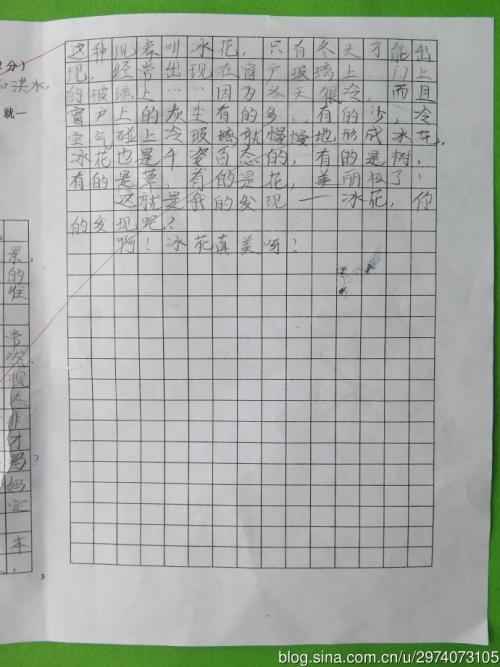 这种现象叫冰花，只有冬天才能出
现，经常出现在窗户玻璃上、门上
的玻璃上……因为冬天很冷，而且
窗户上的灰尘有的多，有的少，冷
空气碰上冷玻璃就慢慢地形成冰花，
冰花也是千姿百态的，有的是树，
有的是草，有的是花，美丽极了！
这就是我的发现——冰花，你
的发现呢？
啊！冰花真美呀！
分）
和洪水，
就一
景，
的
常
次
观
态
非
才
吗？
妈
宝
本
3
blog.sina.com.cn/u/2974073105